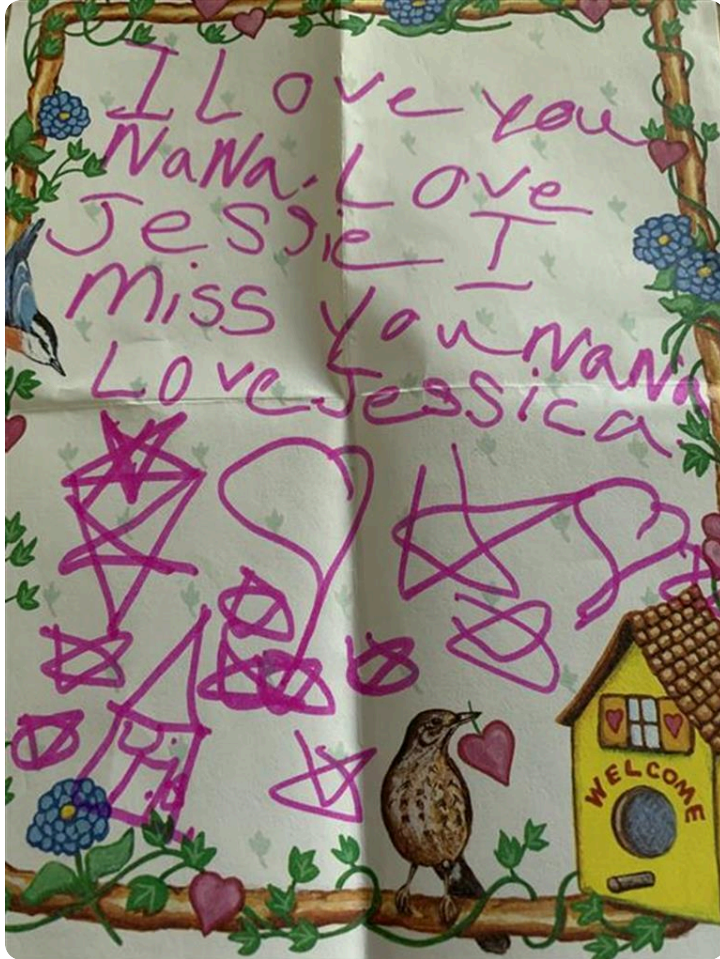 I Love you
NaNa. Love
Jessie I
Miss you NaNa
Love Jessica
WELCOME